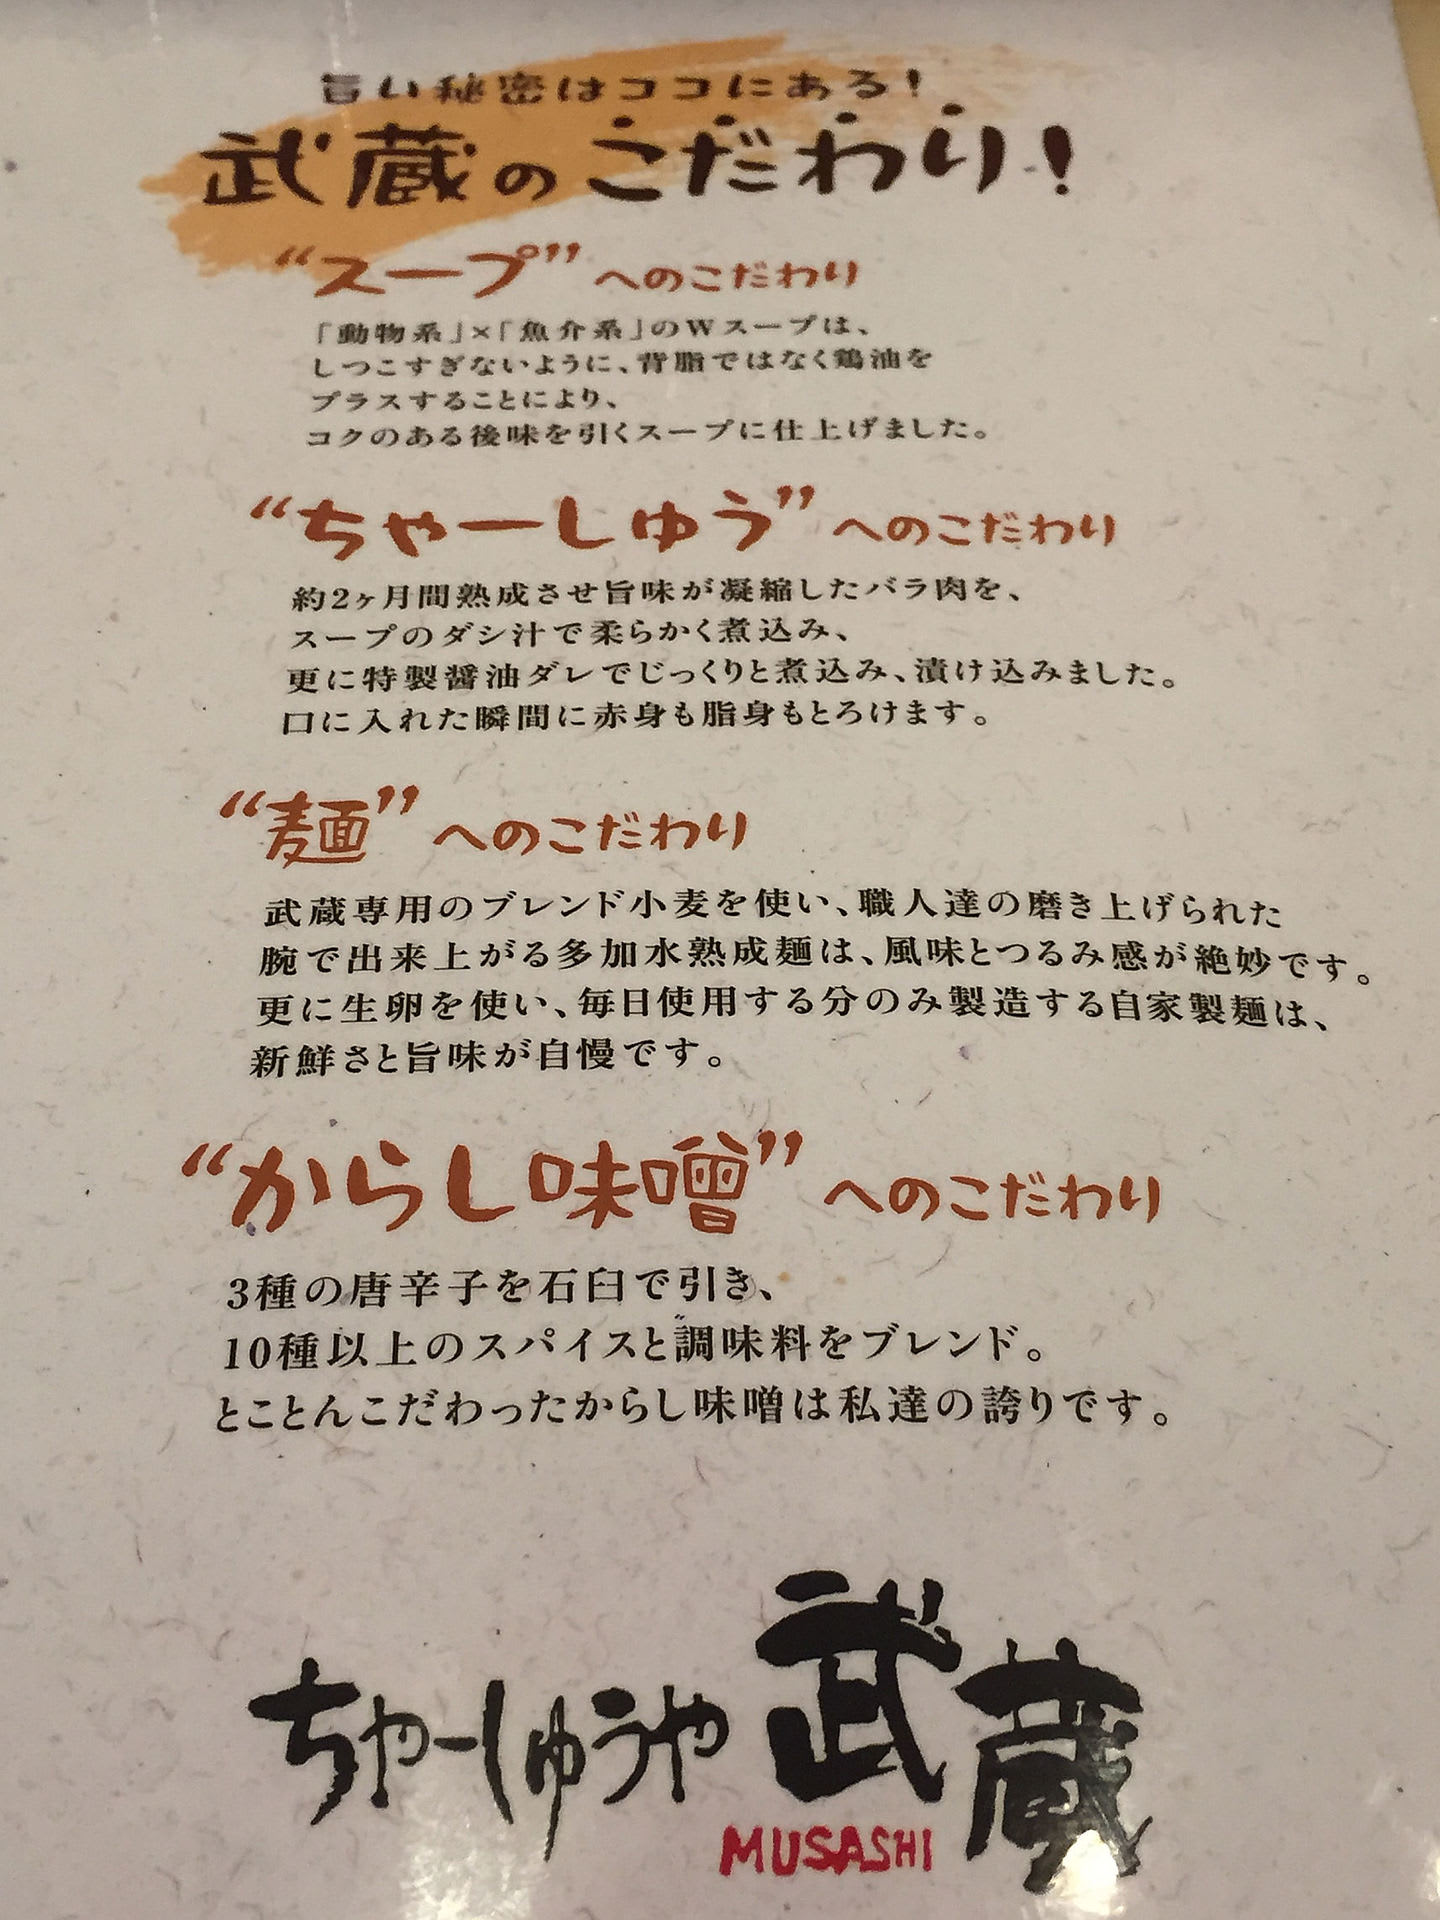 旨い秘密はココにある!
武蔵のこだわり!
“スープ”へのこだわり
「動物系」×「魚介系」のWスープは、
しつこすぎないように、背脂ではなく鶏油を
プラスすることにより、
コクのある後味を引くスープに仕上げました。
“ちゃーしゅう”へのこだわり
約2ヶ月間熟成させ旨味が凝縮したバラ肉を、
スープのダシ汁で柔らかく煮込み、
更に特製醤油ダレでじっくりと煮込み、漬け込みました。
口に入れた瞬間に赤身も脂身もとろけます。
“麺”へのこだわり
武蔵専用のブレンド小麦を使い、職人達の磨き上げられた
腕で出来上がる多加水熟成麺は、風味とつるみ感が絶妙です。
更に生卵を使い、毎日使用する分のみ製造する自家製麺は、
新鮮さと旨味が自慢です。
“からし味噌”へのこだわり
3種の唐辛子を石臼で引き、
10種以上のスパイスと調味料をブレンド。
とことんこだわったからし味噌は私達の誇りです。
ちゃーしゅうや武蔵
MUSASHI